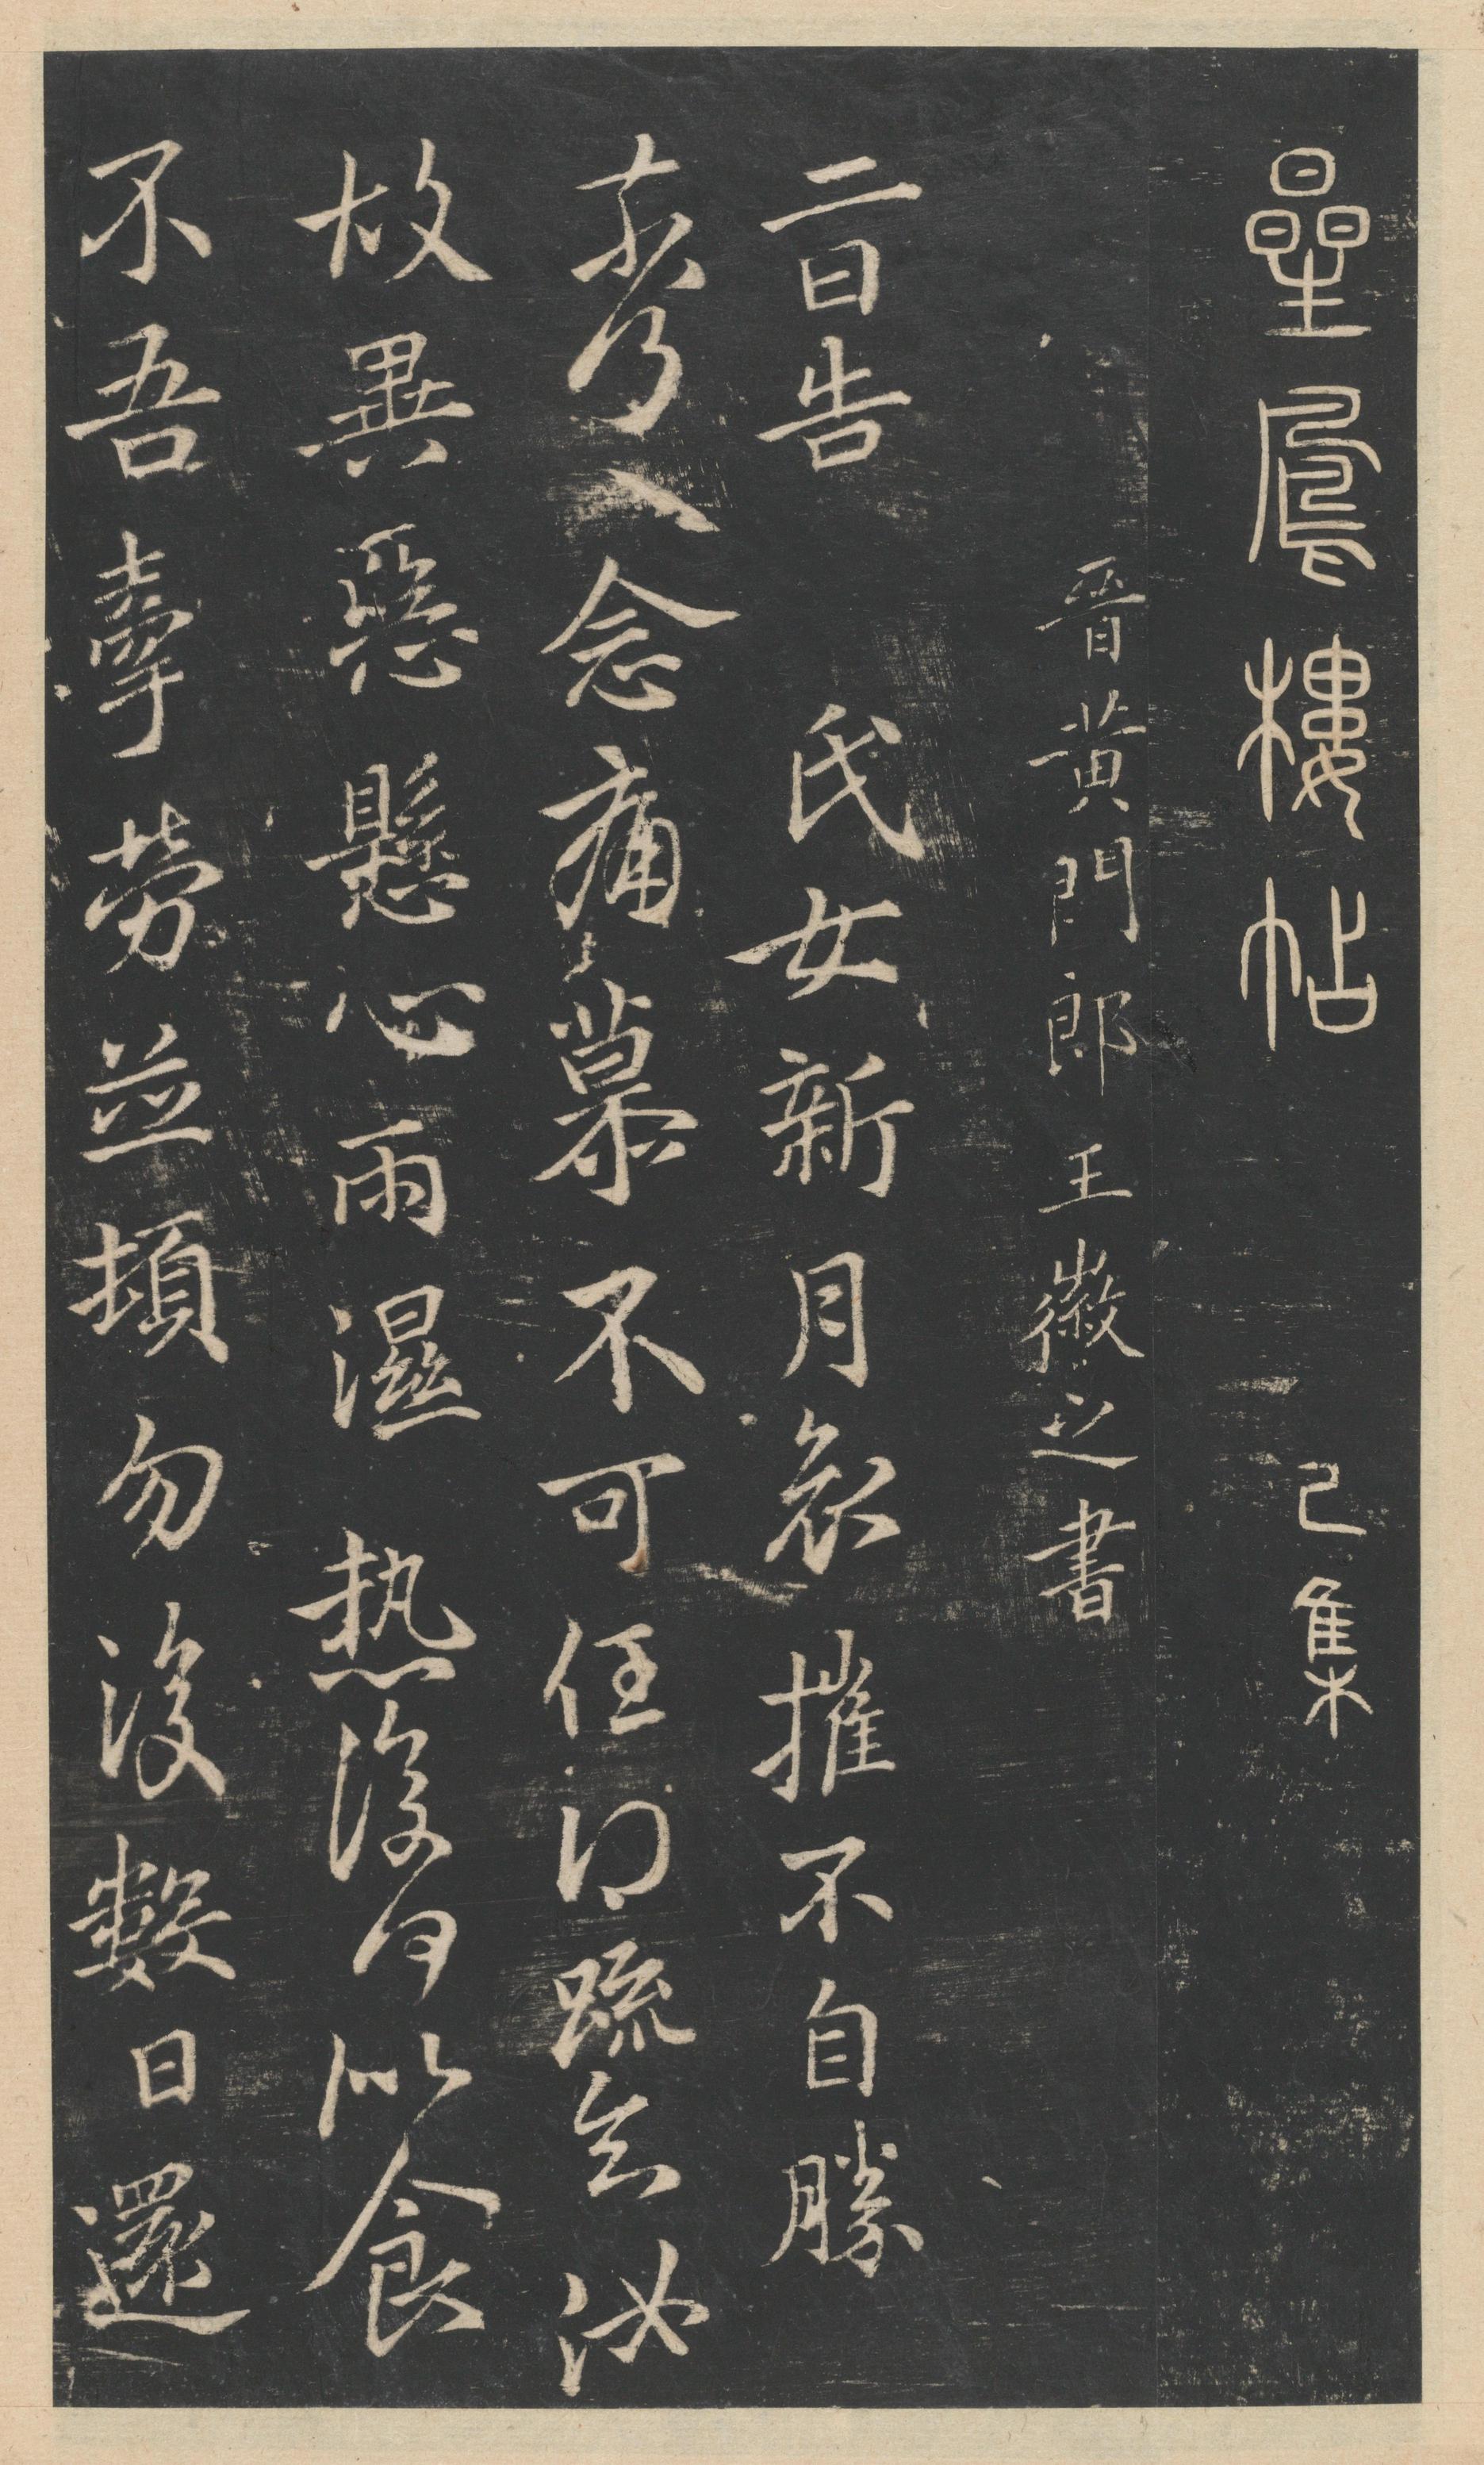 星鳳樓帖　己集
晉黃門郎王徽之書
二日告　氏女新月哀摧不自勝
奈何〻念痛慕不可任得疏知汝
故異惡懸心雨濕熱復何似食
不吾牽勞並頓勿復數日還